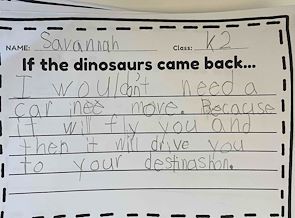 NAME: Savannah Class: K2
If the dinosaurs came back...
I wouldn't need a
car inee move. Because
it will fly you and
then it will drive you
to your destinashin.